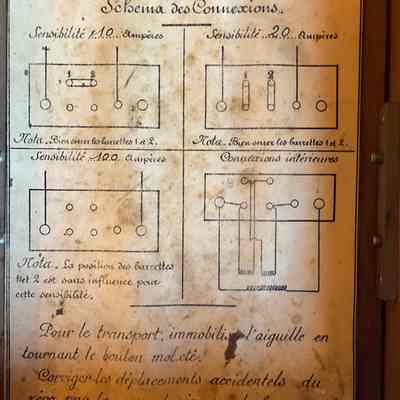 Schéma des Connexions.
Sensibilité 10 Ampères
Sensibilité 20 Ampères
1 2
1 2
Nota. Bien serrer les barrettes 1 et 2.
Nota. Bien serrer les barrettes 1 et 2.
Sensibilité 100 Ampères
Connexions intérieures
Nota. La position des barrettes
1 et 2 est sans influence pour
cette sensibilité.
Pour le transport, l'aiguille en
tournant le bouton moleté.
Corriger les déplacements accidentels du